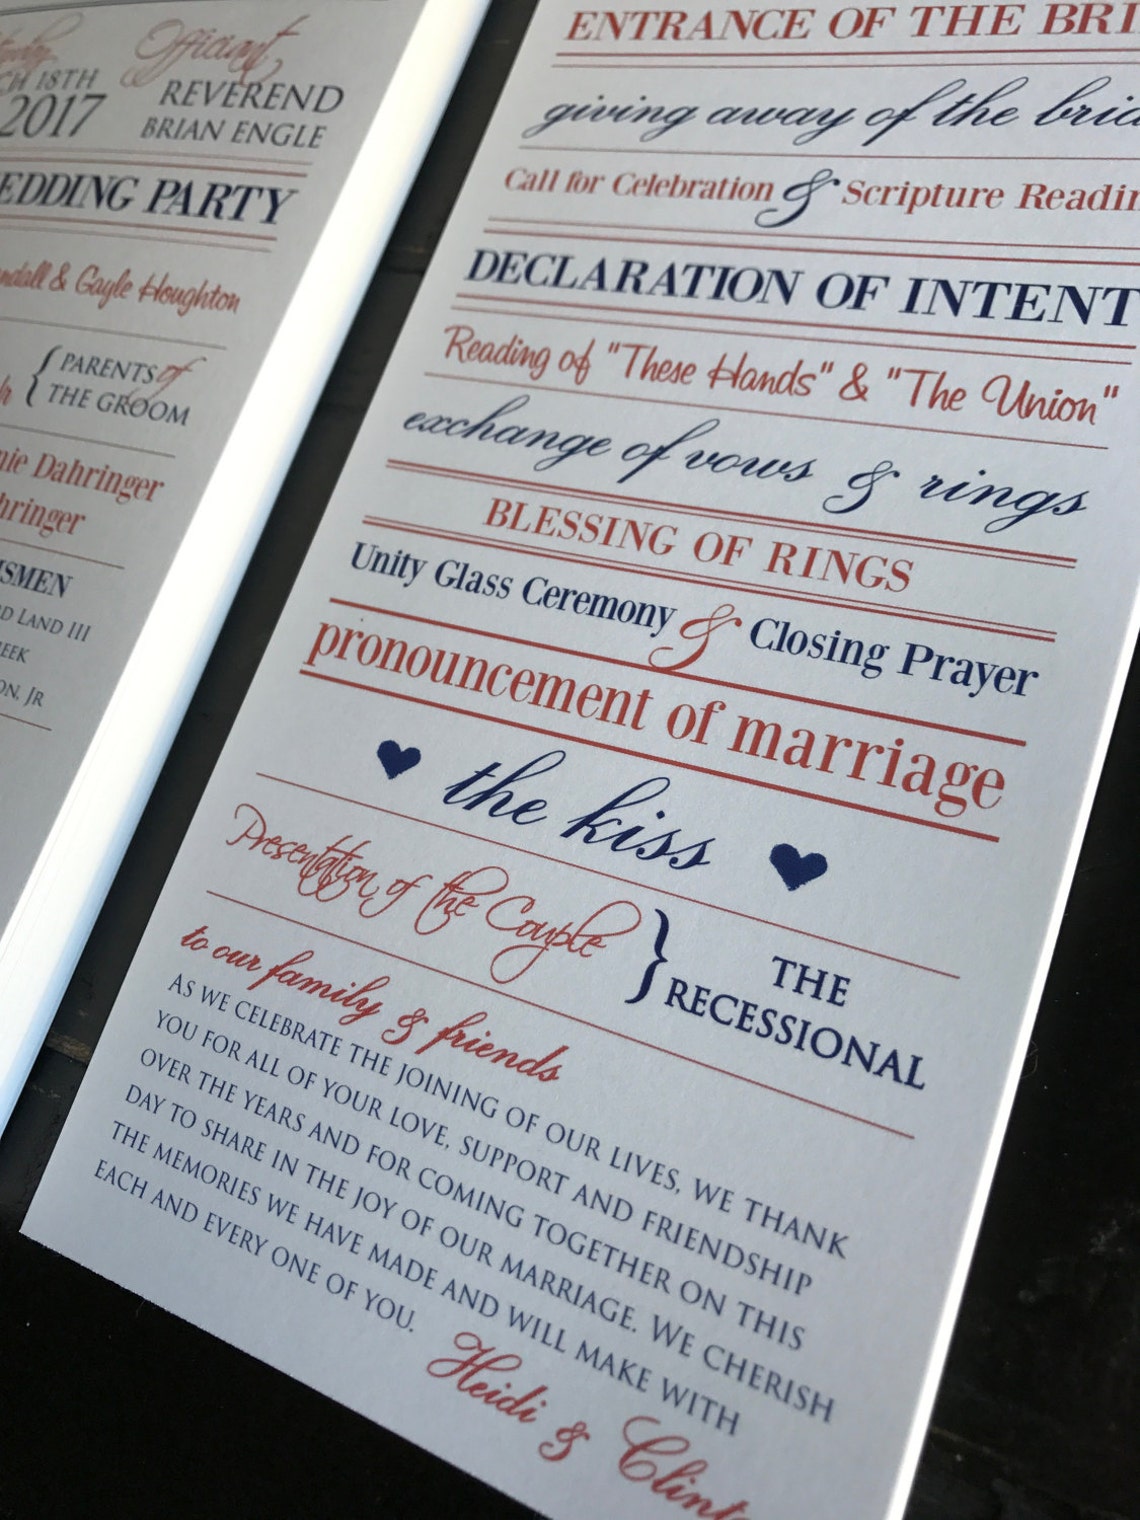 Officiant
CH 18TH
2017
REVEREND
BRIAN ENGLE
EDDING PARTY
ndall & Gayle Houghton
{ PARENTS of
THE GROOM
nie Dahringer
hringer
SMEN
RD LAND III
EEK
ON, JR
ENTRANCE OF THE BRI
giving away of the brid
Call for Celebration & Scripture Readin
DECLARATION OF INTENT
Reading of "These Hands" & "The Union"
exchange of vows & rings
BLESSING OF RINGS
Unity Glass Ceremony & Closing Prayer
pronouncement of marriage
the kiss
Presentation of the Couple } THE
RECESSIONAL
to our family & friends
AS WE CELEBRATE THE JOINING OF OUR LIVES, WE THANK
YOU FOR ALL OF YOUR LOVE, SUPPORT AND FRIENDSHIP
OVER THE YEARS AND FOR COMING TOGETHER ON THIS
DAY TO SHARE IN THE JOY OF OUR MARRIAGE. WE CHERISH
THE MEMORIES WE HAVE MADE AND WILL MAKE WITH
EACH AND EVERY ONE OF YOU.
Heidi & Clint